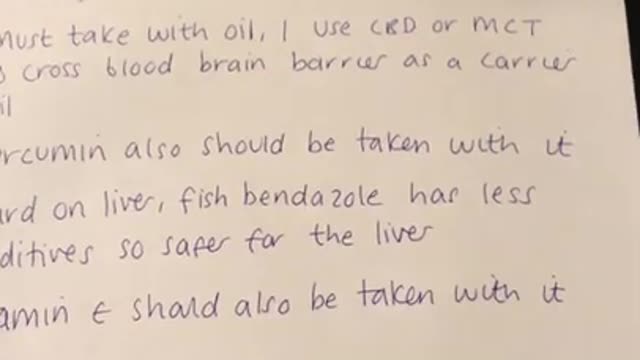 must take with oil, I use CBD or MCT
cross blood brain barrier as a carrier
il
rcumin also should be taken with it
ard on liver, fish bendazole has less
ditives so safer for the liver
amin E should also be taken with it